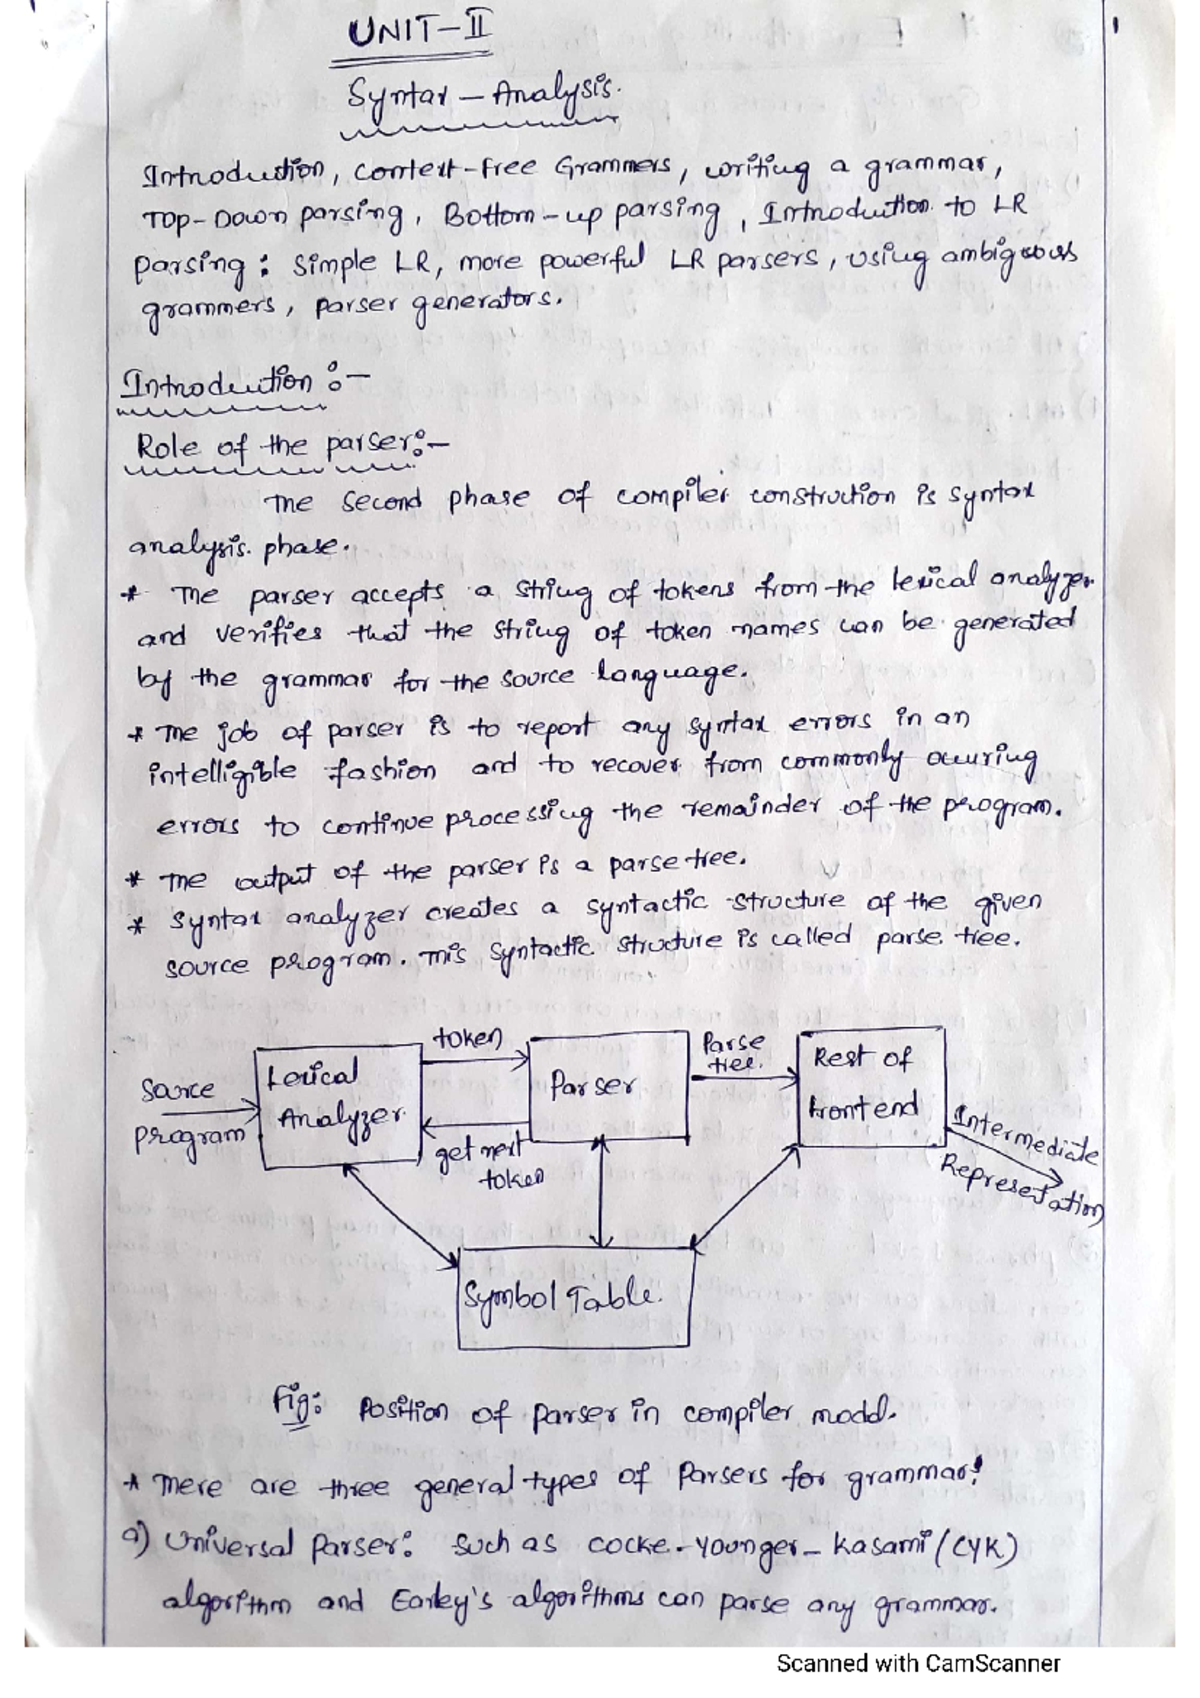 1
UNIT-II
Syntax - Analysis.
Introduction, context-free Grammers, writing a grammar,
TOP-Down parsing, Bottom-up parsing, Introduction to LR
parsing: simple LR, more powerful LR parsers, using ambiguous
grammers, parser generators.
Introduction :-
Role of the parser:-
The second phase of compiler construction is syntax
analysis phase.
* The parser accepts a string of tokens from the lexical analyzer
and verifies that the string of token names can be generated
by the grammar for the source language.
* The job of parser is to report any syntax errors in an
intelligible fashion and to recover from commonly occuring
errors to continue processing the remainder of the program.
* The output of the parser is a parse tree.
* Syntax analyzer creates a syntactic structure of the given
source program. This syntactic structure is called parse tree.
Source
program
Lexical
Analyzer
token
get next
token
Parser
Parse
tree.
Rest of
frontend
Intermediate
Representation
Symbol Table.
Fig: Position of Parser in compiler model.
* There are three general types of Parsers for grammar!
a) Universal Parser: Such as COCKE-YOUNGER-KASAMI (CYK)
algorithm and Earley's algorithms can parse any grammar.
Scanned with CamScanner